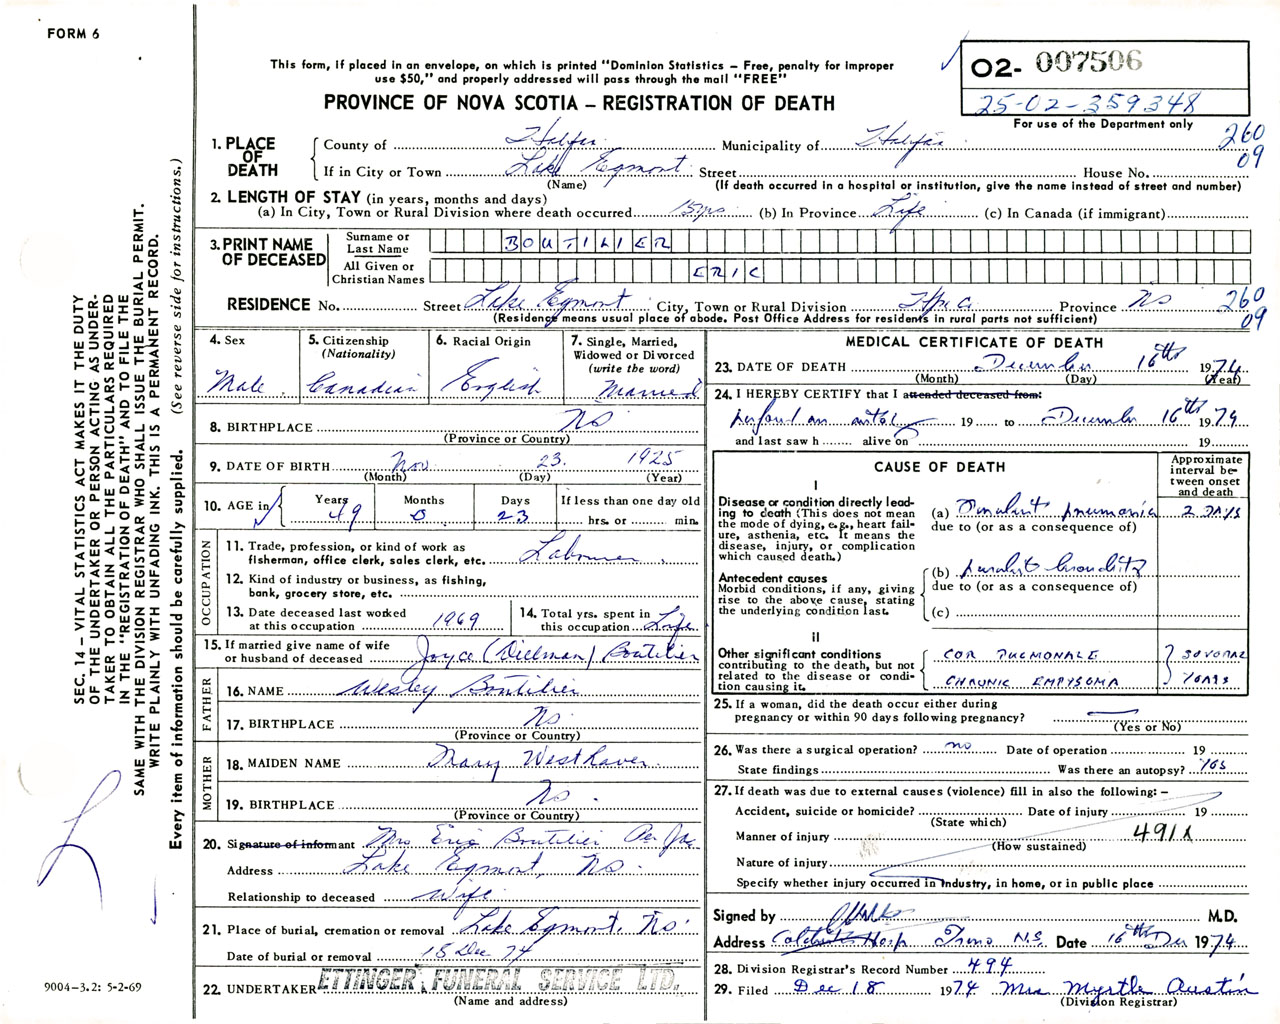 FORM 6
This form, if placed in an envelope, on which is printed "Dominion Statistics – Free, penalty for improper
use $50," and properly addressed will pass through the mail "FREE"
PROVINCE OF NOVA SCOTIA – REGISTRATION OF DEATH
O2- 007506
25-02-359348
For use of the Department only
260
09
1. PLACE OF DEATH
County of Halifax Municipality of Halifax
If in City or Town Lake Egmont Street House No.
(Name) (If death occurred in a hospital or institution, give the name instead of street and number)
2. LENGTH OF STAY (in years, months and days)
(a) In City, Town or Rural Division where death occurred 15 yrs (b) In Province Life (c) In Canada (if immigrant)
3. PRINT NAME OF DECEASED
Surname or Last Name BOUTILIER
All Given or Christian Names ERIC
RESIDENCE No. Street Lake Egmont City, Town or Rural Division Hfx Co. Province NS
260
09
(Residence means usual place of abode. Post Office Address for residents in rural parts not sufficient)
4. Sex
Male
5. Citizenship
(Nationality)
Canadian
6. Racial Origin
English
7. Single, Married,
Widowed or Divorced
(write the word)
Married
8. BIRTHPLACE NS
(Province or Country)
9. DATE OF BIRTH Nov. 23. 1925
(Month) (Day) (Year)
10. AGE in
Years 49
Months 0
Days 23
If less than one day old
hrs. or min.
OCCUPATION
11. Trade, profession, or kind of work as
fisherman, office clerk, sales clerk, etc. Labourer.
12. Kind of industry or business, as fishing,
bank, grocery store, etc.
13. Date deceased last worked
at this occupation 1969
14. Total yrs. spent in
this occupation Life
15. If married give name of wife
or husband of deceased Joyce (Dillman) Boutilier
FATHER
16. NAME Wesley Boutilier
17. BIRTHPLACE NS
(Province or Country)
MOTHER
18. MAIDEN NAME Mary Westhaver
19. BIRTHPLACE NS.
(Province or Country)
20. Signature of informant Mrs Eric Boutilier Per
Address Lake Egmont, NS.
Relationship to deceased Wife
21. Place of burial, cremation or removal Lake Egmont, NS.
Date of burial or removal 18 Dec 74
22. UNDERTAKER ETTINGER FUNERAL SERVICE LTD.
(Name and address)
MEDICAL CERTIFICATE OF DEATH
23. DATE OF DEATH December 16th 1974
(Month) (Day) (Year)
24. I HEREBY CERTIFY that I attended deceased from:
19 to December 16th 1974
and last saw h alive on 19
CAUSE OF DEATH
Approximate
interval be-
tween onset
and death
I
Disease or condition directly lead-
ing to death (This does not mean
the mode of dying, e.g., heart fail-
ure, asthenia, etc. It means the
disease, injury, or complication
which caused death.)
(a) Purulent pneumonia 2 DAYS
due to (or as a consequence of)
Antecedent causes
Morbid conditions, if any, giving
rise to the above cause, stating
the underlying condition last.
(b) purulent bronchitis
due to (or as a consequence of)
(c)
II
Other significant conditions
contributing to the death, but not
related to the disease or condi-
tion causing it.
COR PULMONALE
CHRONIC EMPYSOMA
YEARS
25. If a woman, did the death occur either during
pregnancy or within 90 days following pregnancy?
(Yes or No)
26. Was there a surgical operation? no Date of operation 19
State findings Was there an autopsy? YES
27. If death was due to external causes (violence) fill in also the following: –
Accident, suicide or homicide? Date of injury 19
(State which)
Manner of injury 491X
(How sustained)
Nature of injury
Specify whether injury occurred in industry, in home, or in public place
Signed by M.D.
Address Colchester Hosp Truro N.S. Date 16th Dec 1974
28. Division Registrar's Record Number 494
29. Filed Dec 18 1974 Mrs Myrtle Austin
(Division Registrar)
SEC. 14 – VITAL STATISTICS ACT MAKES IT THE DUTY
OF THE UNDERTAKER OR PERSON ACTING AS UNDER-
TAKER TO OBTAIN ALL THE PARTICULARS REQUIRED
IN THE "REGISTRATION OF DEATH" AND TO FILE THE
SAME WITH THE DIVISION REGISTRAR WHO SHALL ISSUE THE BURIAL PERMIT.
WRITE PLAINLY WITH UNFADING INK. THIS IS A PERMANENT RECORD.
Every item of information should be carefully supplied. (See reverse side for instructions.)
9004-3.2: 5-2-69